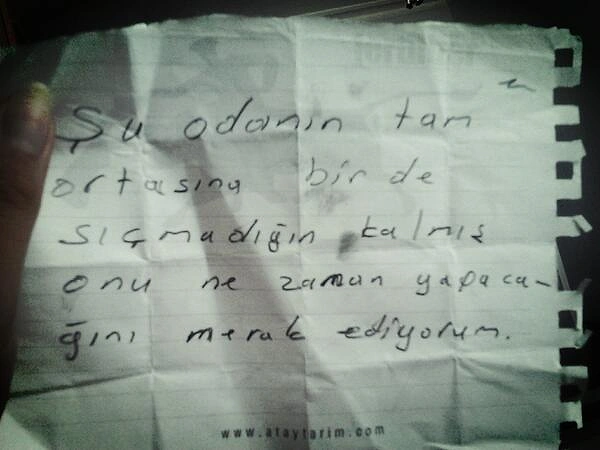 Şu odanın tam
ortasına bir de
sıçmadığın kalmış
onu ne zaman yapaca-
ğını merak ediyorum.
www.ataytarim.com